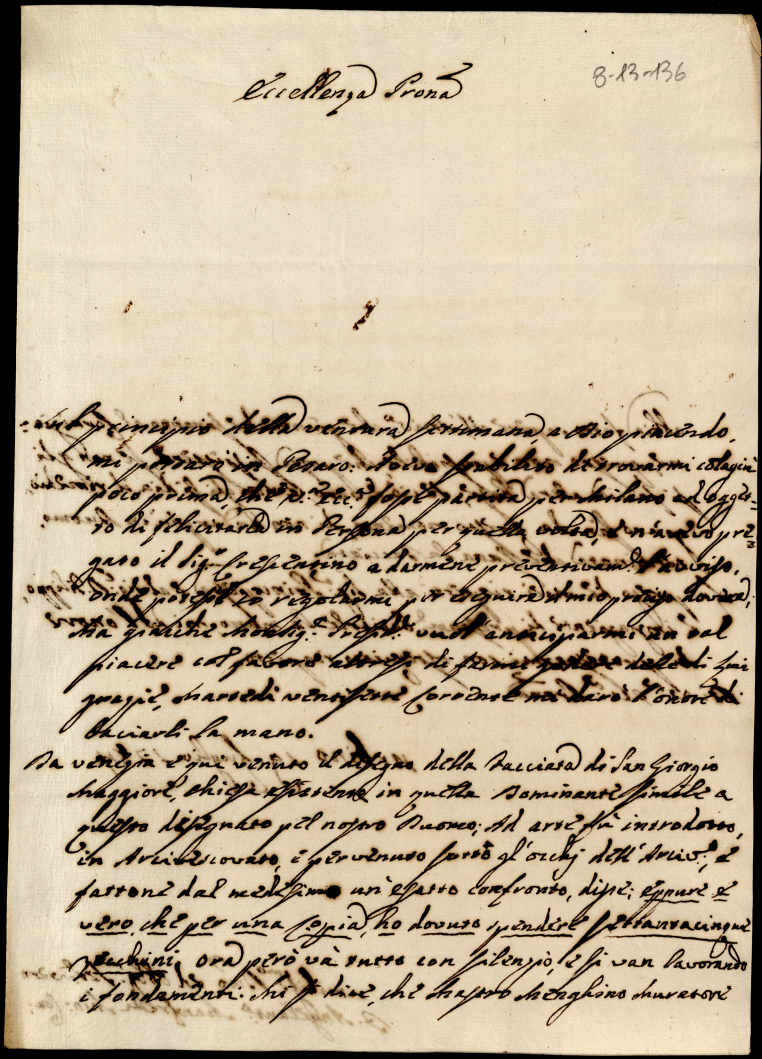 8-13-136
Eccellenza Prona
Nel principio della ventura settimana, a Dio piacendo,
mi porterò in Pesaro: Aveva stabilito di trovarmi colà qui
poco prima, che V.ra Ecc.a fosse partita per Milano ad ogget-
to di felicitarla in Persona per quella volta, e n'avevo pre-
gato il Sig.r Crescentino a darmene preventivam.e l'avviso,
onde potess'io regolarmi per eseguire il mio preciso dovere;
Ma giacchè Monsig.r Presid.e vuol anticiparmi un tal
piacere col favore altresì di farmi godere delle di Lui
grazie, Martedì ventisette Corrente mi darò l'onore di
baciarli la mano.
Da Venezia è quì venuto il disegno della Facciata di San Giorgio
Maggiore, Chiesa esistente in quella Dominante simile a
questo disegnato pel nostro Duomo; Ad arte fù introdotto,
in Arcivescovato, e pervenuto sotto gl'occhj dell'Arciv.o, e
fattone dal medesimo un'esatto confronto, disse; eppure è
vero, che per una Copia, ho dovuto spendere settantacinque
Zecchini, ora però và tutto con silenzio, e si van lavorando
i fondamenti: Mi si dice, che Mastro Menghino Muratore